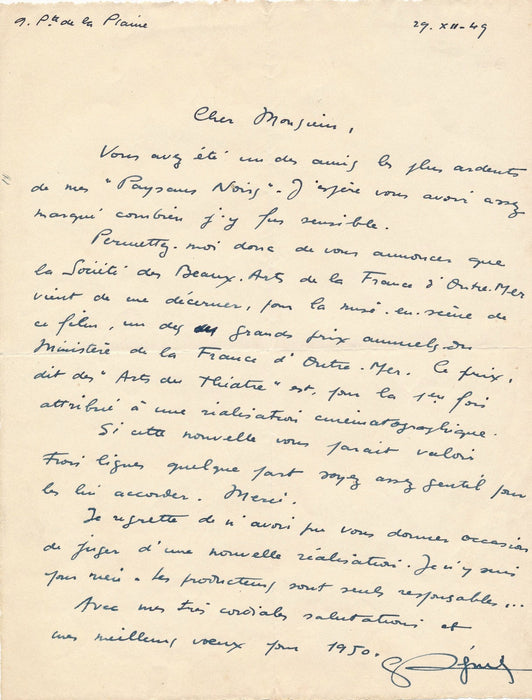 9. Pte de la Plaine
29. XII - 49
Cher Monsieur,
Vous avez été un des amis les plus ardents
de mes "Paysans Noirs". J'espère vous avoir assez
marqué combien j'y fus sensible.
Permettez-moi donc de vous annoncer que
la Société des Beaux-Arts de la France d'Outre-Mer
vient de me décerner, pour la mise-en-scène de
ce film, un des grands prix annuels du
Ministère de la France d'Outre-Mer. Ce prix,
dit des "Arts du théâtre" est, pour la 1ère fois
attribué à une réalisation cinématographique.
Si cette nouvelle vous parait valoir
trois lignes quelque part soyez assez gentil pour
les lui accorder. Merci.
Je regrette de n'avoir pu vous donner occasion
de juger d'une nouvelle réalisation. Je n'y suis
pour rien - les producteurs sont seuls responsables...
Avec mes très cordiales salutations et
mes meilleurs vœux pour 1950.